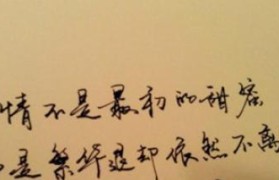 情不是最初的甜蜜
是繁华退却依然不离